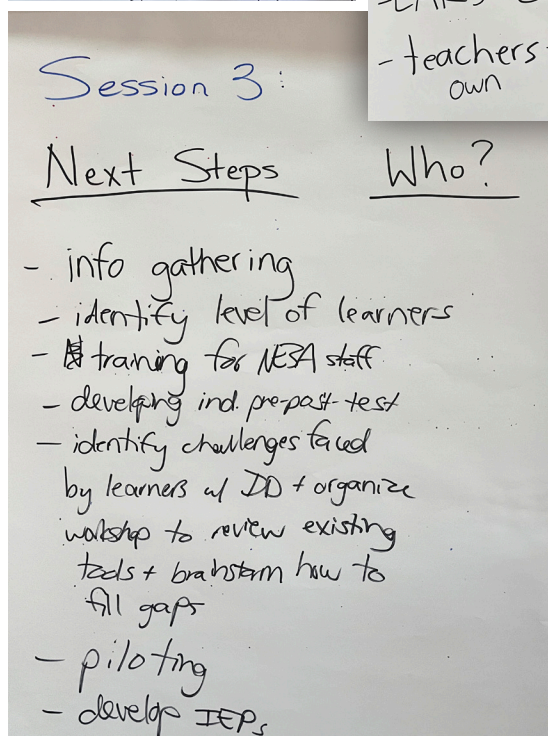 - teachers
own
Session 3:
Next Steps Who?
- info gathering
- identify level of learners
- training for NESA staff
- developing ind. pre-post-test
- identify challenges faced
by learners w/ DD + organize
workshop to review existing
tools + brainstorm how to
fill gaps
- piloting
- develop IEPs